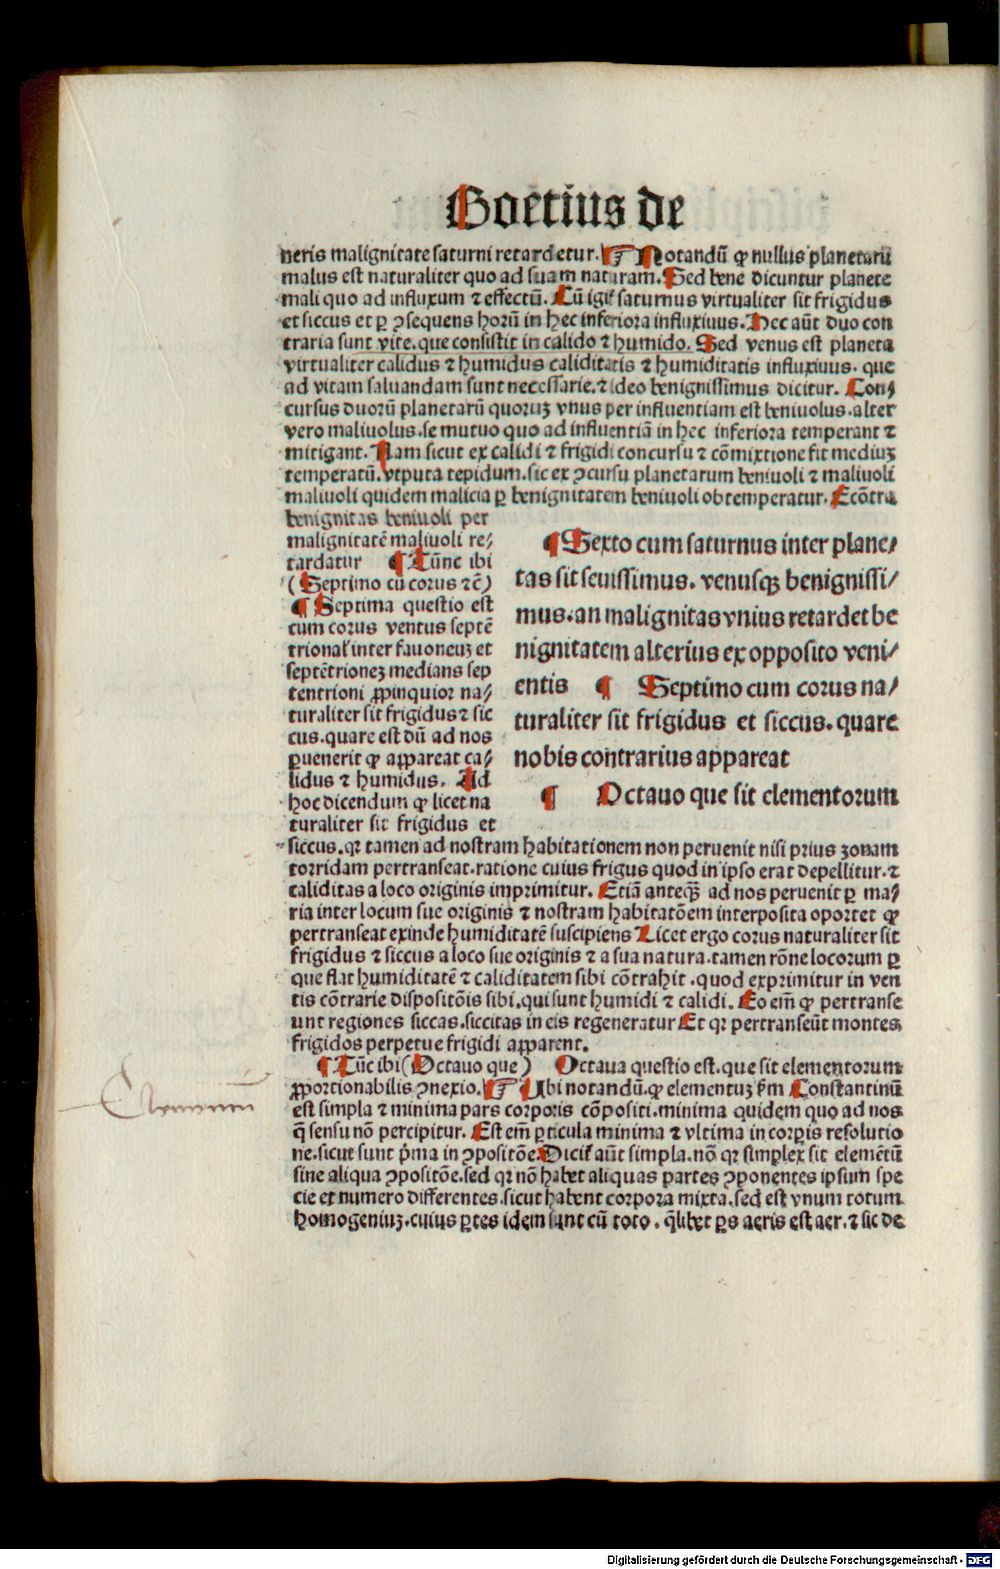 Boetius de
neris malignitate saturni retardetur. ☞ Notandū ꝙ nullus planetarū
malus est naturaliter quo ad suam naturam. Sed bene dicuntur planete
mali quo ad influxum ⁊ effectū. Cū igiť saturnus virtualiter sit frigidus
et siccus et ꝑ ꝯsequens horū in hec inferiora influxiuus. Hec aūt duo con
traria sunt vite. que consistit in calido ⁊ humido. Sed venus est planeta
virtualiter calidus ⁊ humidus caliditatis ⁊ humiditatis influxiuus. que
ad vitam saluandam sunt necessarie. ⁊ ideo benignissimus dicitur. Con⸗
cursus duorū planetarū quoruꝫ vnus per influentiam est beniuolus. alter
vero maliuolus. se mutuo quo ad influentiā in hec inferiora temperant ⁊
mitigant. Nam sicut ex calidi ⁊ frigidi concursu ⁊ cōmixtione fit mediuꝫ
temperatū. vtputa tepidum. sic ex ꝯcursu planetarum beniuoli ⁊ maliuoli
maliuoli quidem malicia ꝑ benignitatem beniuoli obtemperatur. Ecōtra
benignitas beniuoli per
malignitatē maliuoli re⸗
tardatur ¶ Tūnc ibi
(Septimo cū corus ⁊c̄)
¶ Septima questio est
cum corus ventus septē
trionaľ inter fauoneuꝫ et
septētrioneꝫ medians sep
tentrioni ꝓpinquior na⸗
turaliter sit frigidus ⁊ sic
cus. quare est dū ad nos
ꝑuenerit ꝙ appareat ca⸗
lidus ⁊ humidus. Ad
hoc dicendum ꝙ licet na
turaliter sit frigidus et
¶ Sexto cum saturnus inter plane⸗
tas sit seuissimus. venusqꝫ benignissi⸗
mus. an malignitas vnius retardet be
nignitatem alterius ex opposito veni⸗
entis ¶ Septimo cum corus na⸗
turaliter sit frigidus et siccus. quare
nobis contrarius appareat
¶ Octauo que sit elementorum
siccus. qꝛ tamen ad nostram habitationem non peruenit nisi prius zonam
torridam pertranseat. ratione cuius frigus quod in ipso erat depellitur. ⁊
caliditas a loco originis imprimitur. Etiā anteqꝫ̄ ad nos peruenit ꝑ ma⸗
ria inter locum sue originis ⁊ nostram habitatōem interposita oportet ꝙ
pertranseat exinde humiditatē suscipiens Licet ergo corus naturaliter sit
frigidus ⁊ siccus a loco sue originis ⁊ a sua natura. tamen rōne locorum ꝑ
que flat humiditatē ⁊ caliditatem sibi cōtrahit. quod exprimitur in ven
tis cōtrarie dispositōis sibi. qui sunt humidi ⁊ calidi. Eo em̄ ꝙ pertranse
unt regiones siccas. siccitas in eis regeneratur Et qꝛ pertranseūt montes
frigidos perpetue frigidi apparent.
¶ Tūc ibi (Octauo que) Octaua questio est. que sit elementorum
ꝓportionabilis ꝯnexio. ☞ Ubi notandū. ꝙ elementuꝫ ẜm Constantinū
est simpla ⁊ minima pars corporis cōpositi. minima quidem quo ad nos
q̄ sensu nō percipitur. Est em̄ ꝑticula minima ⁊ vltima in corꝑis resolutio
ne. sicut sunt p̄ma in ꝯpositōe. Diciť aūt simpla. nō qꝛ simplex sit elemētū
sine aliqua ꝯpositōe. sed qꝛ nō habet aliquas partes ꝯponentes ipsum spe
cie et numero differentes. sicut habent corpora mixta. sed est vnum totum
homogeniuꝫ. cuius ꝑtes idem sunt cū toto. q̄libet ꝑs aeris est aer. ⁊ sic de
Digitalisierung gefördert durch die Deutsche Forschungsgemeinschaft - DFG